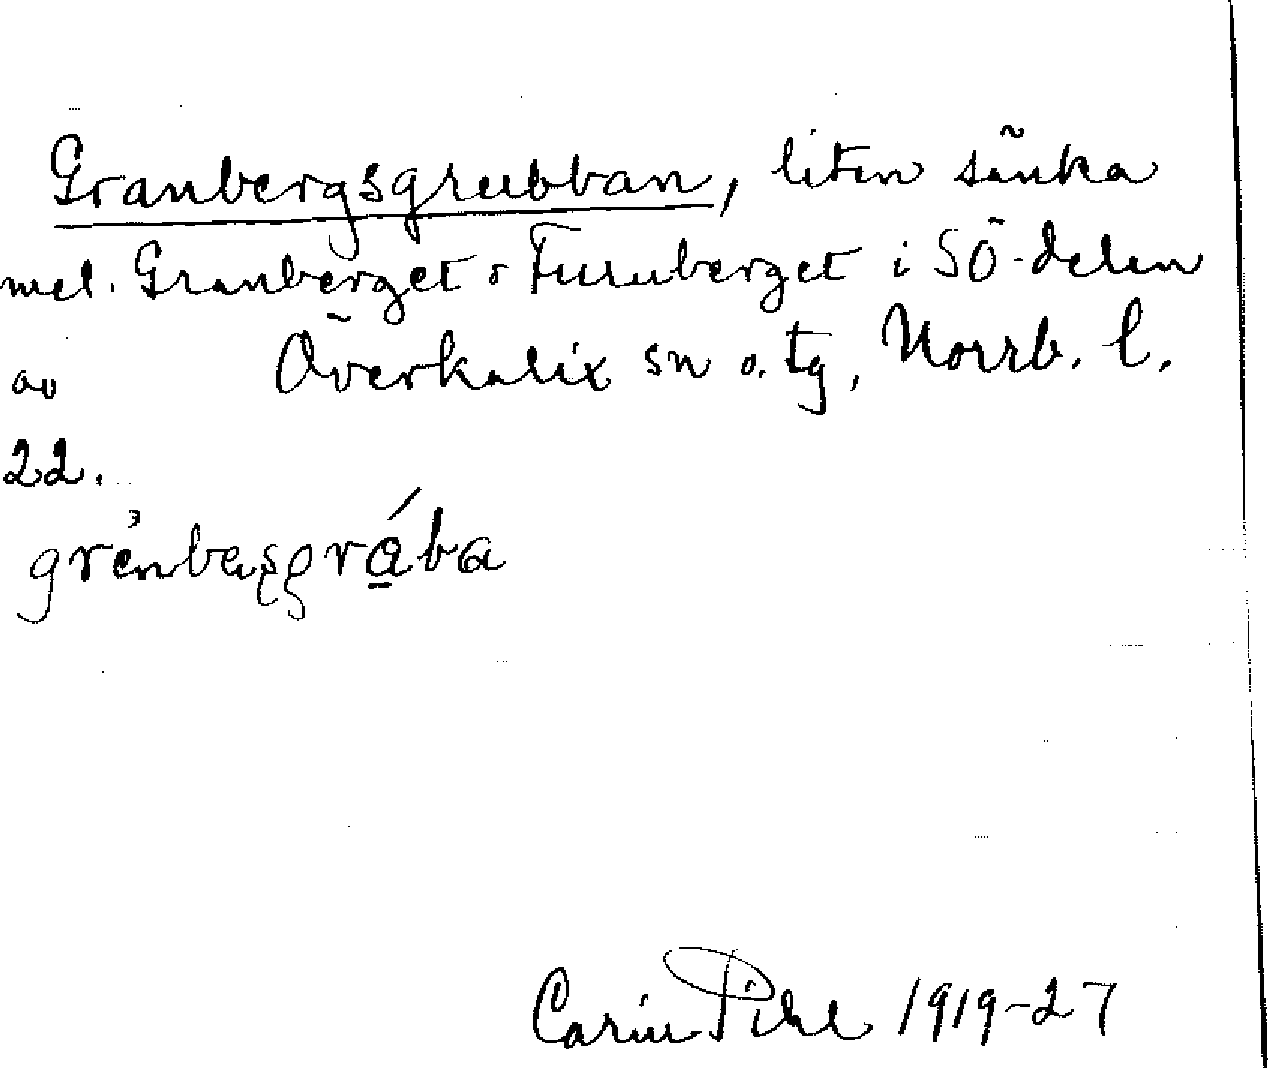 Granbergsgrubban, liten sänka
mel. Granberget o Furuberget i SÖ-delen
av Överkalix sn o. tg, Norrb. l.
22.
Carin Pihl 1919-27